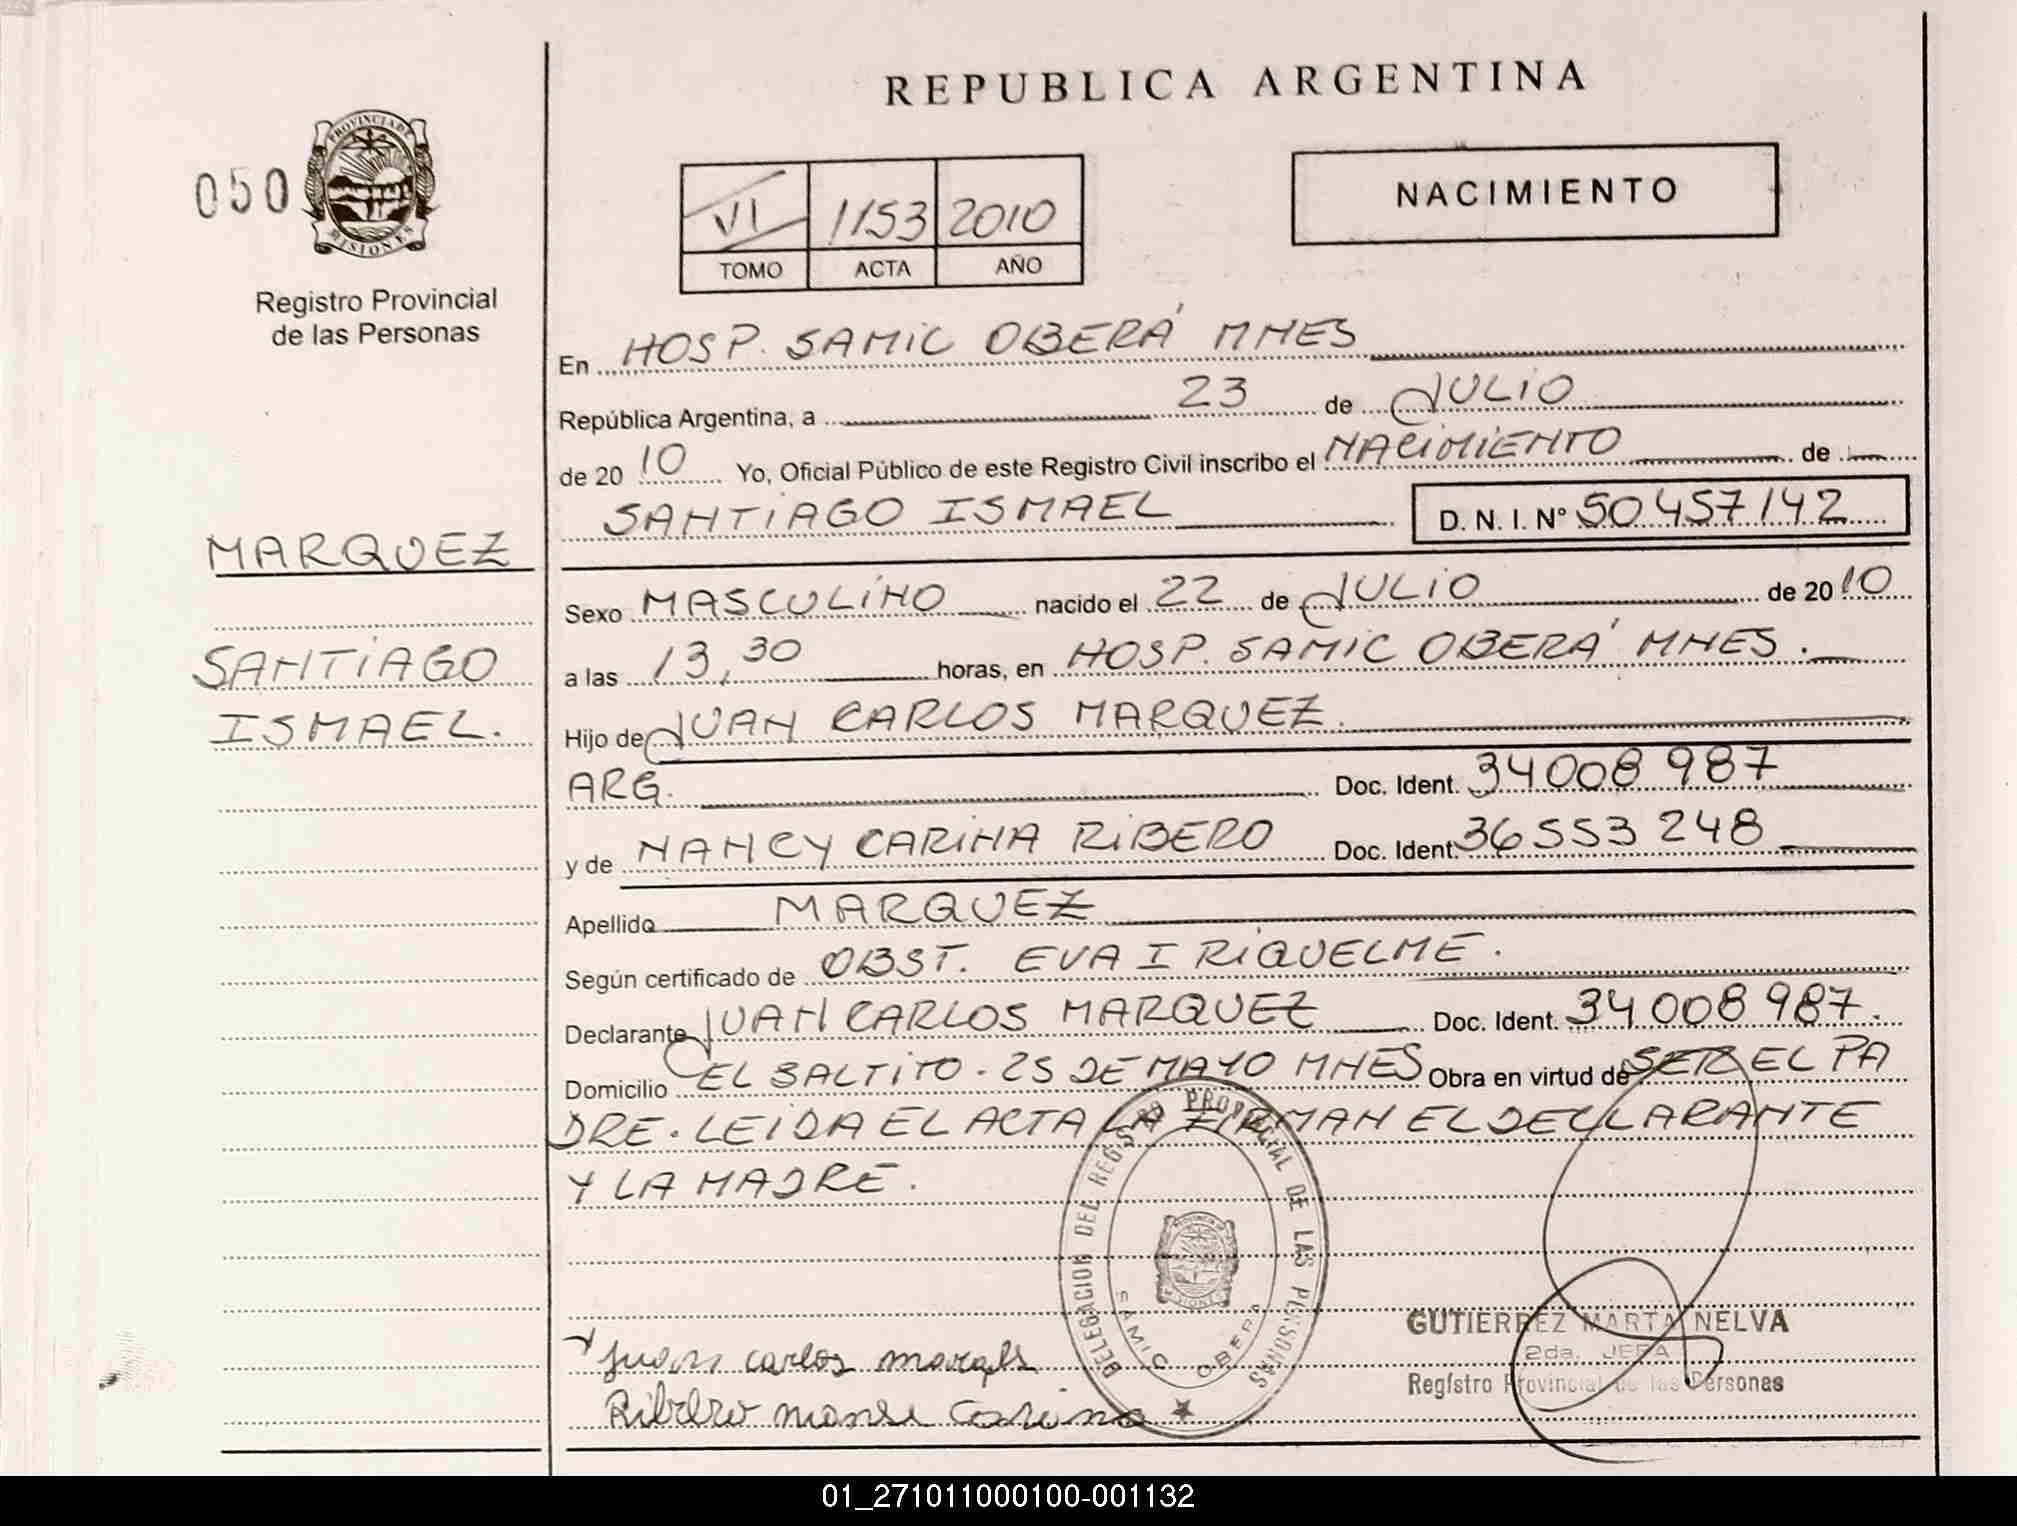 REPUBLICA ARGENTINA
050
PROVINCIA DE
MISIONES
Registro Provincial
de las Personas
VI 1153 2010
TOMO ACTA AÑO
NACIMIENTO
En HOSP. SAMIC OBERÁ MNES
República Argentina, a 23 de JULIO
de 20 10 Yo, Oficial Público de este Registro Civil inscribo el NACIMIENTO de
SANTIAGO ISMAEL D. N. I. Nº 50 457 142
MARQUEZ
SANTIAGO
ISMAEL.
Sexo MASCULINO nacido el 22 de JULIO de 20 10
a las 13,30 horas, en HOSP. SAMIC OBERÁ MNES.
Hijo de JUAN CARLOS MARQUEZ.
ARG. Doc. Ident. 34 008 987
y de NANCY CARINA RIBERO Doc. Ident. 36 553 248
Apellido MARQUEZ
Según certificado de OBST. EVA I RIQUELME.
Declarante JUAN CARLOS MARQUEZ Doc. Ident. 34 008 987.
Domicilio EL SALTITO - 25 DE MAYO MNES Obra en virtud de SER EL PA
DRE. LEIDA EL ACTA LA FIRMAN EL DECLARANTE
Y LA MADRE.
DELEGACION DEL REGISTRO PROVINCIAL DE LAS PERSONAS
SAMIC OBERA
PROVINCIA DE
MISIONES
GUTIERREZ MARTA NELVA
2da. JEFA
Registro Provincial de las Personas
Juan carlos
Ribero Carina
01_271011000100-001132